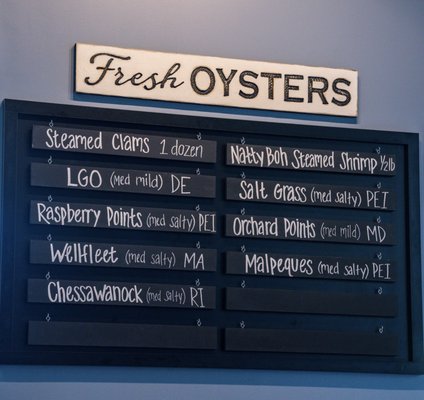 Fresh OYSTERS
Steamed Clams 1 dozen
LGO (med mild) DE
Raspberry Points (med salty) PEI
Wellfleet (med salty) MA
Chessawanock (med salty) RI
Natty Boh Steamed Shrimp ½ lb
Salt Grass (med salty) PEI
Orchard Points (med mild) MD
Malpeques (med salty) PEI